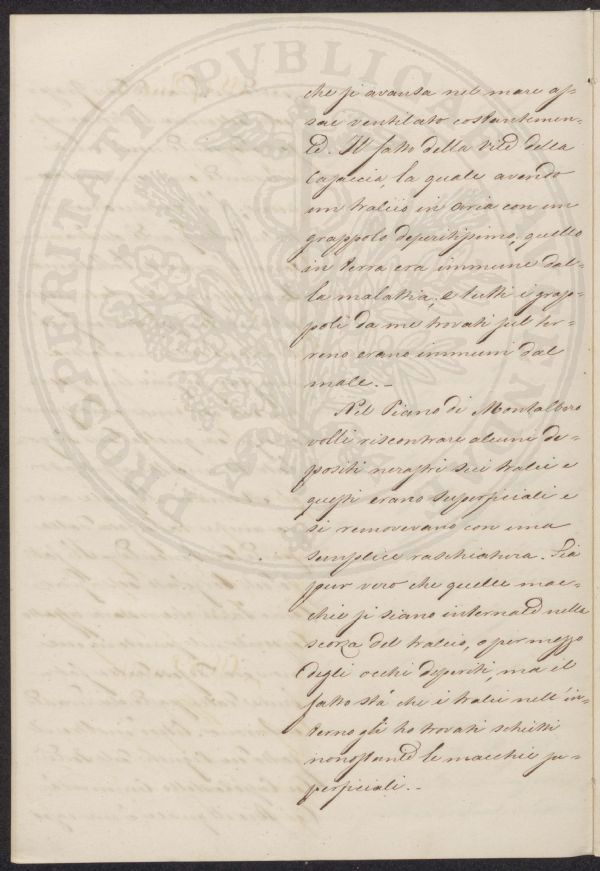 PROSPERITATI PUBLICAE AUGENDAE
che si avanza nel mare as-
sai ventilato costantemen-
te. Il fatto della vite della
Casaccia, la quale avendo
un tralcio in aria con un
grappolo deperitissimo, quello
in terra era immune dal-
la malattia; e tutti i grap-
poli da me trovati sul ter-
reno erano immuni dal
male. _
Nel Piano di Montalbero
volli riscontrare alcuni de-
positi nerastri sui tralci e
questi erano superficiali e
si removevano con una
semplice raschiatura. Sia
pur vero che quelle mac-
chie si siano internate nella
scorza del tralcio, o per mezzo
degli occhi deperiti, ma il
fatto sta che i tralci nell'in-
terno gli ho trovati schietti
nonostante le macchie su-
perficiali. _